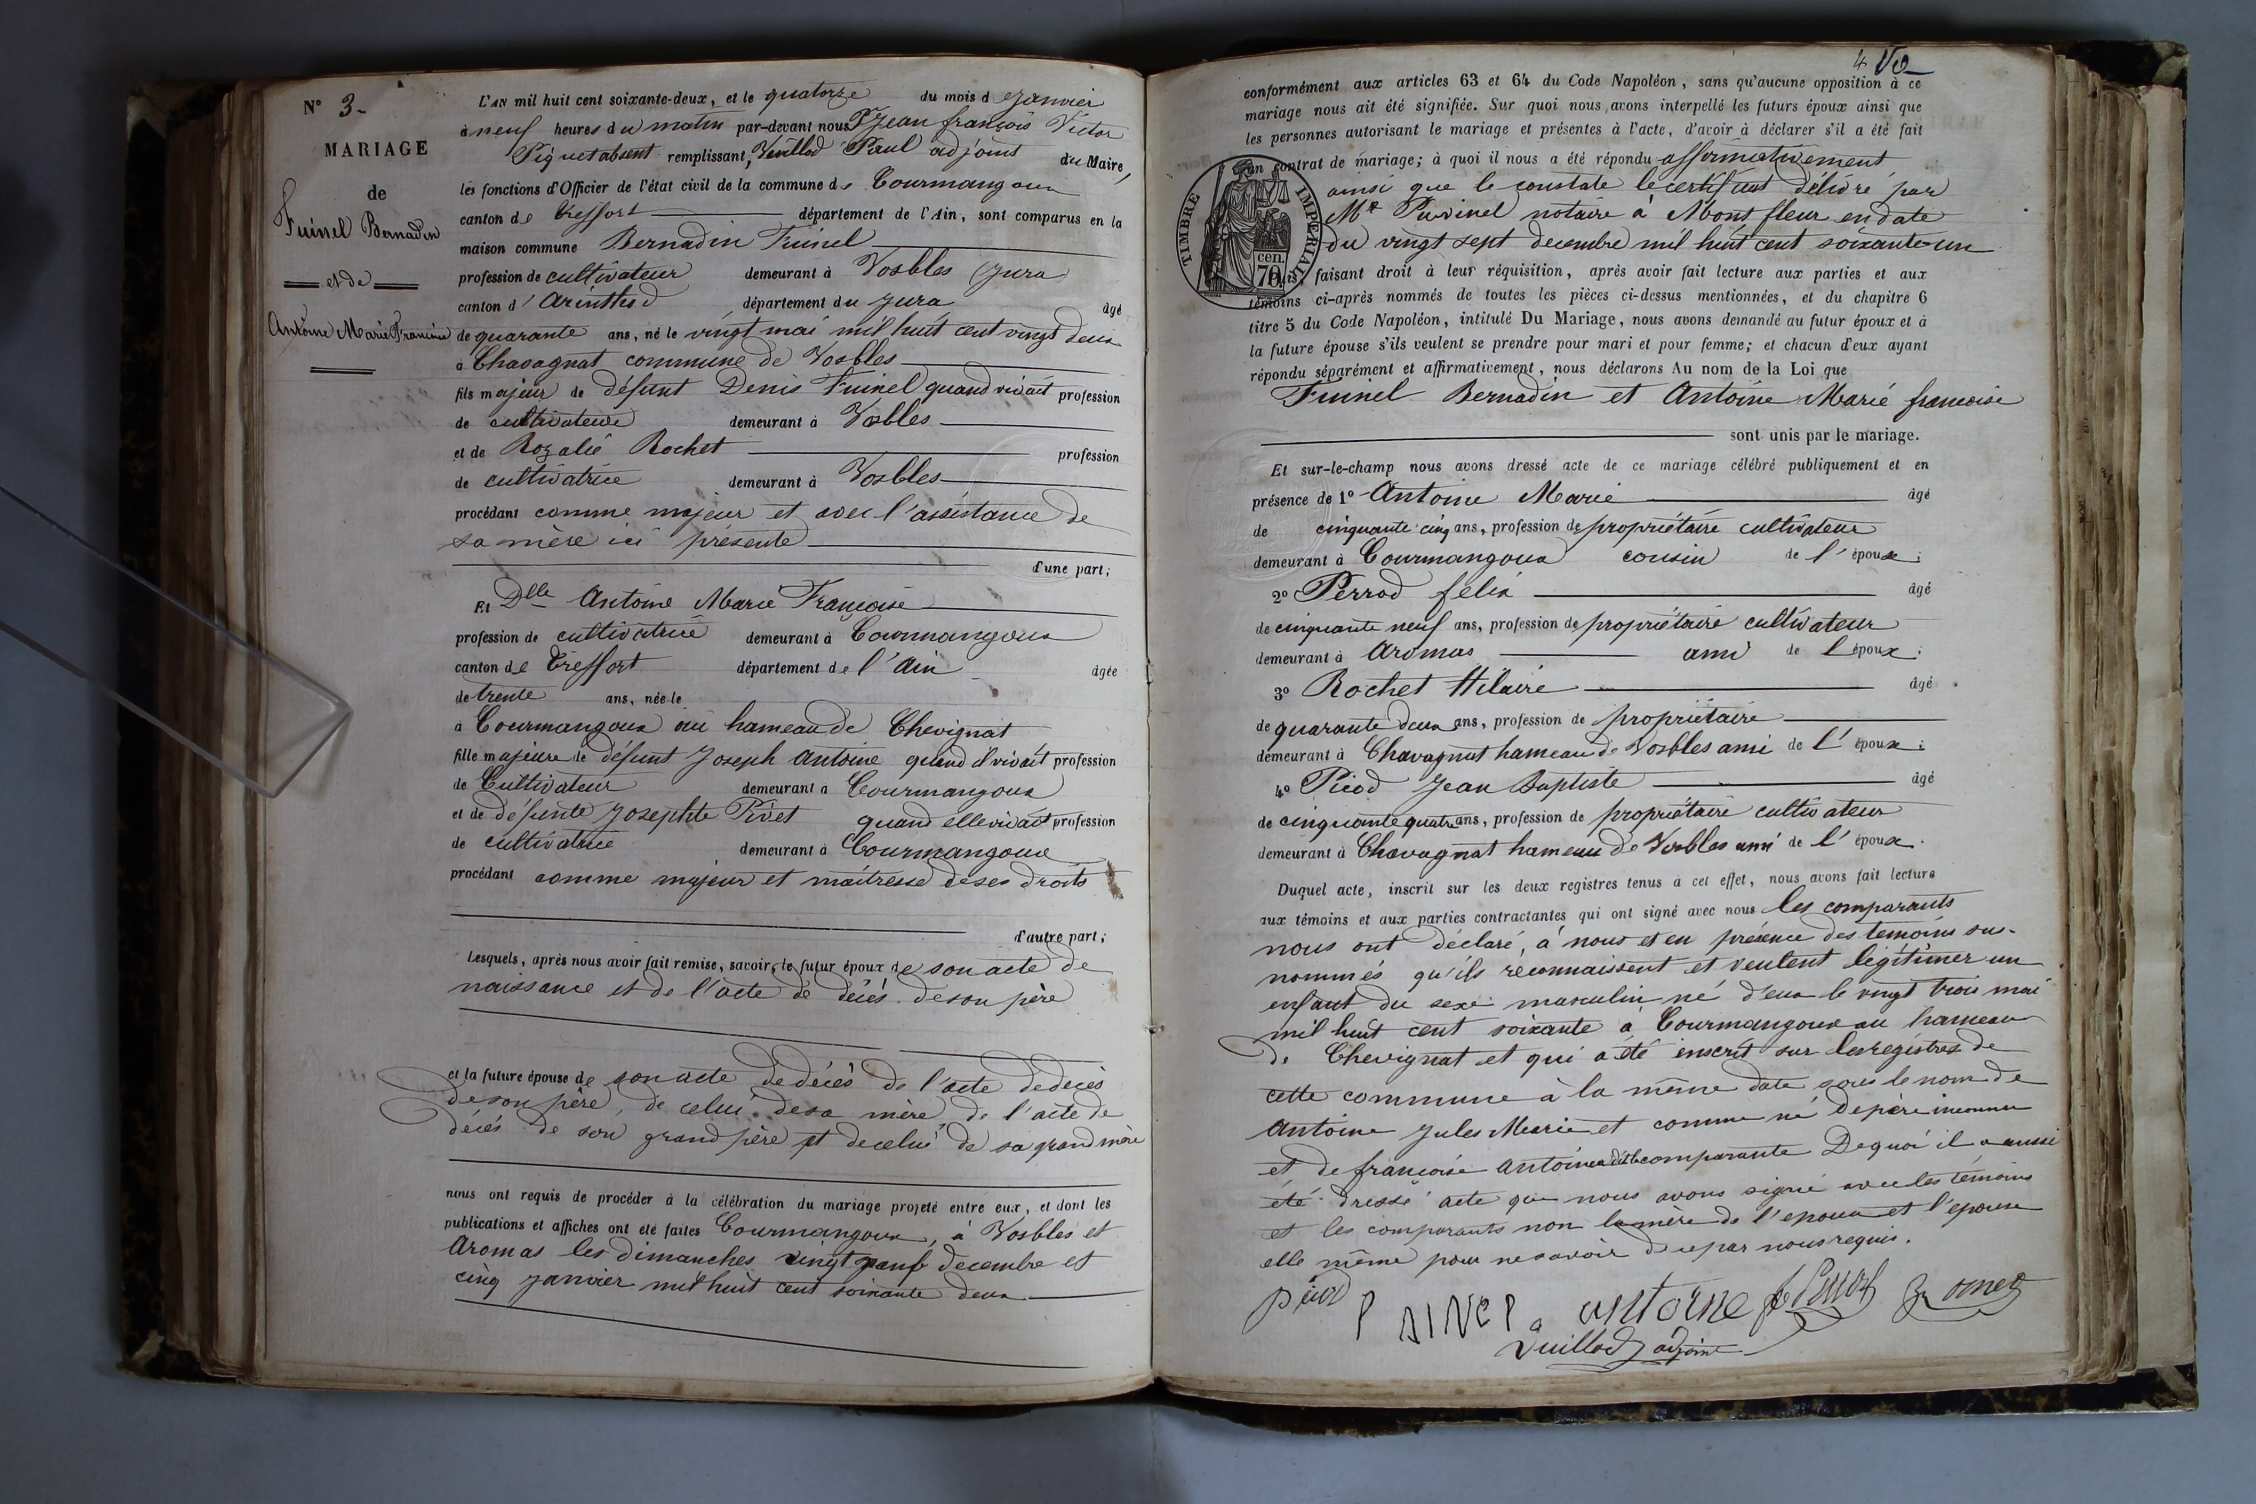 N° 3-
MARIAGE
de
Fuinel Bernadin
et de
Antoine Marie Francoise
L'AN mil huit cent soixante-deux, et le quatorze du mois d e Janvier
à neuf heures du matin par-devant nous Jean françois Victor
Piquet absent remplissant, Vuillod Paul adjoint du Maire,
les fonctions d'Officier de l'état civil de la commune de Courmangoux
canton de Treffort département de l'Ain, sont comparus en la
maison commune Bernadin Fuinel
profession de cultivateur demeurant à Vosbles (Jura
canton d'Arinthod département du Jura âgé
de quarante ans, né le vingt mai mil huit cent vingt deux
à Chavagnat commune de Vosbles
fils majeur de défunt Denis Fuinel quand vivait profession
de cultivateur demeurant à Vosbles
et de Rozalie Rochet profession
de cultivatrice demeurant à Vosbles
procédant comme majeur et avec l'assistance de
sa mère ici présente
d'une part;
Et Dlle Antoine Marie Françoise
profession de cultivatrice demeurant à Courmangoux
canton de Treffort département de l'Ain âgée
de trente ans, née le
à Courmangoux au hameau de Chevignat
fille majeure de défunt Joseph Antoine quand il vivait profession
de Cultivateur demeurant à Courmangoux
et de défunte Josephte Pivet quand elle vivait profession
de cultivatrice demeurant à Courmangoux
procédant comme majeur et maîtresse de ses droits
d'autre part;
Lesquels, après nous avoir fait remise, savoir, le futur époux de son acte de
naissance et de l'acte de décès de son père
et la future épouse de son acte de décès de l'acte de décès
de son père, de celui de sa mère, de l'acte de
décès de son grand père et de celui de sa grand mère
nous ont requis de procéder à la célébration du mariage projeté entre eux, et dont les
publications et affiches ont été faites Courmangoux, à Vosbles et
Aromas les dimanches vingt neuf decembre et
cinq janvier mil huit cent soixante deux
4 Vo
conformément aux articles 63 et 64 du Code Napoléon, sans qu'aucune opposition à ce
mariage nous ait été signifiée. Sur quoi nous avons interpellé les futurs époux ainsi que
les personnes autorisant le mariage et présentes à l'acte, d'avoir à déclarer s'il a été fait
un contrat de mariage; à quoi il nous a été répondu affirmativement
ainsi que le constate le certificat délivré par
Mr Puvinel notaire à Montfleur en date
du vingt sept decembre mil huit cent soixante-un
TIMBRE IMPÉRIAL
70 cen.
Puis, faisant droit à leur réquisition, après avoir fait lecture aux parties et aux
témoins ci-après nommés de toutes les pièces ci-dessus mentionnées, et du chapitre 6
titre 5 du Code Napoléon, intitulé Du Mariage, nous avons demandé au futur époux et à
la future épouse s'ils veulent se prendre pour mari et pour femme; et chacun d'eux ayant
répondu séparément et affirmativement, nous déclarons Au nom de la Loi que
Fuinel Bernadin et Antoine Marie francoise
sont unis par le mariage.
Et sur-le-champ nous avons dressé acte de ce mariage célébré publiquement et en
présence de 1° Antoine Marie âgé
de cinquante cinq ans, profession de propriétaire cultivateur
demeurant à Courmangoux cousin de l'époux;
2° Perrod felix âgé
de cinquante neuf ans, profession de propriétaire cultivateur
demeurant à Aromas ami de l'époux;
3° Rochet Hilaire âgé
de quarante deux ans, profession de propriétaire
demeurant à Chavagnat hameau de Vosbles ami de l'époux;
4° Picod Jean Baptiste âgé
de cinquante quatre ans, profession de propriétaire cultivateur
demeurant à Chavagnat hameau de Vosbles ami de l'époux.
Duquel acte, inscrit sur les deux registres tenus à cet effet, nous avons fait lecture
aux témoins et aux parties contractantes qui ont signé avec nous les comparants
nous ont déclaré, à nous et en présence des temoins sus-
nommés qu'ils réconnaissent et veulent légitimer un
enfant du sexe masculin né d'eux le vingt trois mai
mil huit cent soixante à Courmangoux au hameau
de Chevignat et qui a été inscrit sur les registres de
cette commune à la même date sous le nom de
Antoine Jules Marie et comme né de père inconnu
et de françoise Antoine dite comparante De quoi il a aussi
été dressé acte que nous avons signé avec les témoins
et les comparants non la mère de l'epoux et l'epouse
elle même pour ne savoir de ce par nous requis.
picod antoine
Vuillod adjoint